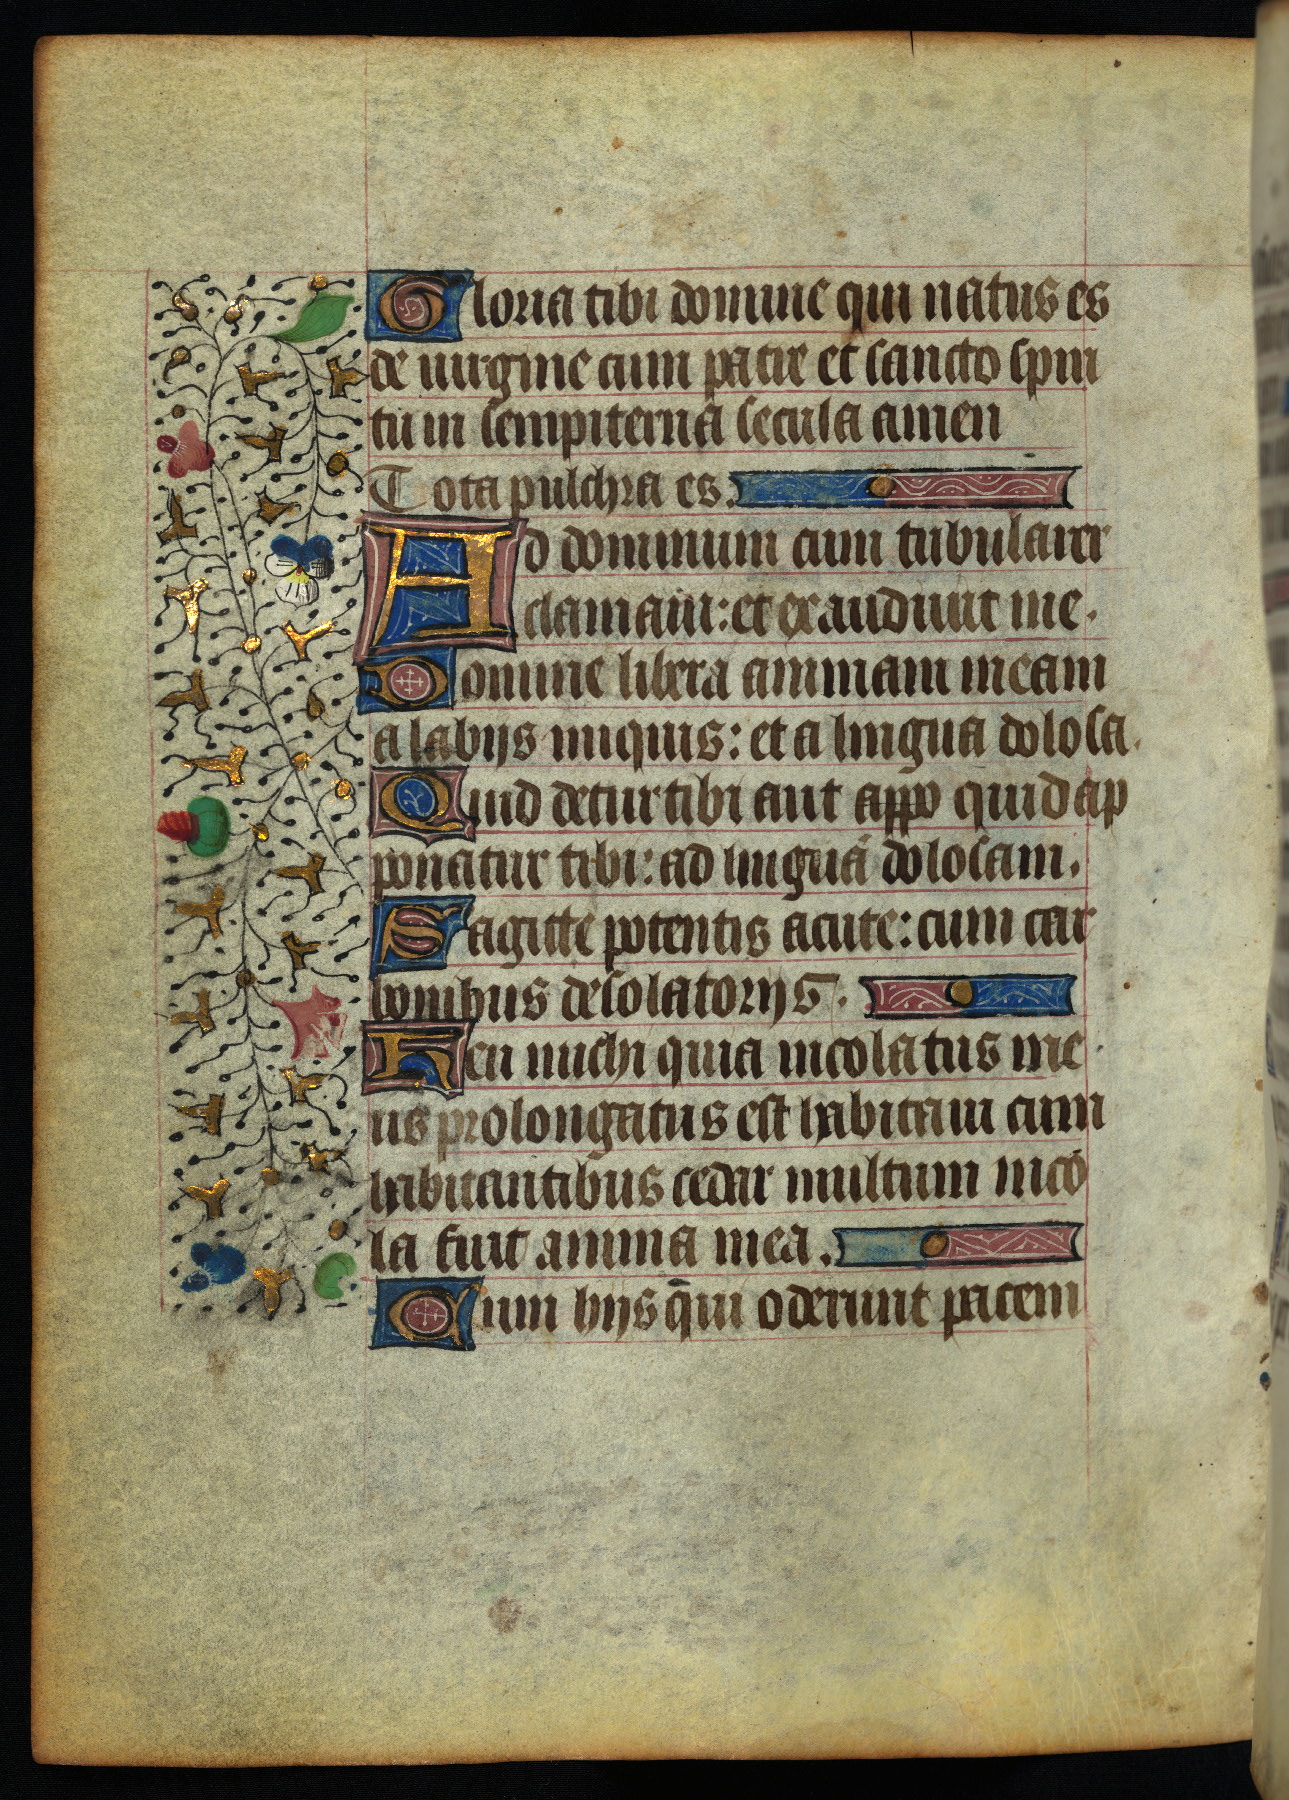 Gloria tibi domine qui natus es
de uirgine cum patre et sancto spiri
tu in sempiterna secula amen
Tota pulchra es.
Ad dominum cum tribularer
clamaui: et exaudiuit me.
Domine libera animam meam
a labijs iniquis: et a lingua dolosa.
Quid detur tibi aut appo quid ap
ponatur tibi: ad linguā dolosam.
Sagitte potentis acute: cum car
bonibus desolatorijs.
Heu michi quia incolatus me
us prolongatus est habitaui cum
habitantibus cedar multum inco
la fuit anima mea.
Cum hijs qui oderunt pacem